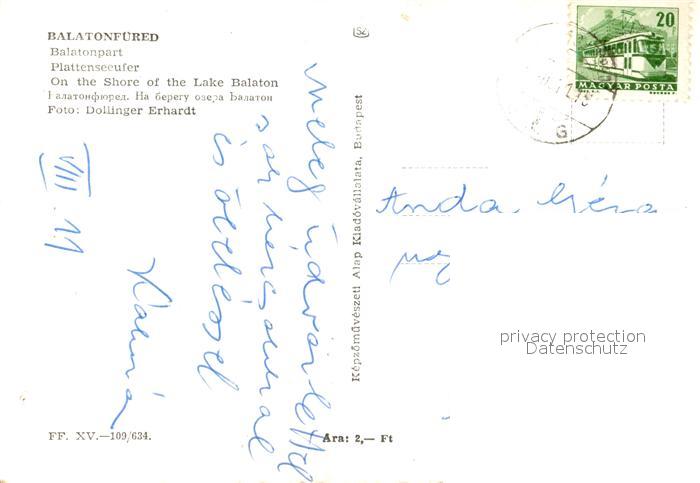 BALATONFÜRED
Balatonpart
Plattenseeufer
On the Shore of the Lake Balaton
Балатонфюред. На берегу озера Балатон
Foto: Dollinger Erhardt
VIII. 11
Meleg üdvözlettel
sok kézcsókkal
és öleléssel
Kálmán
Képzőművészeti Alap Kiadóvállalata, Budapest
20
MAGYAR POSTA
Anda Géza
privacy protection
Datenschutz
FF. XV.—109/634.
Ára: 2,— Ft